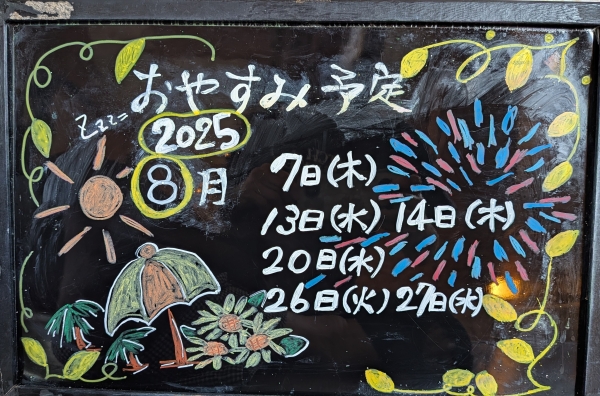 おやすみ予定
Zzz=
2025
8月
7日(木)
13日(水) 14日(木)
20日(水)
26日(火) 27日(水)